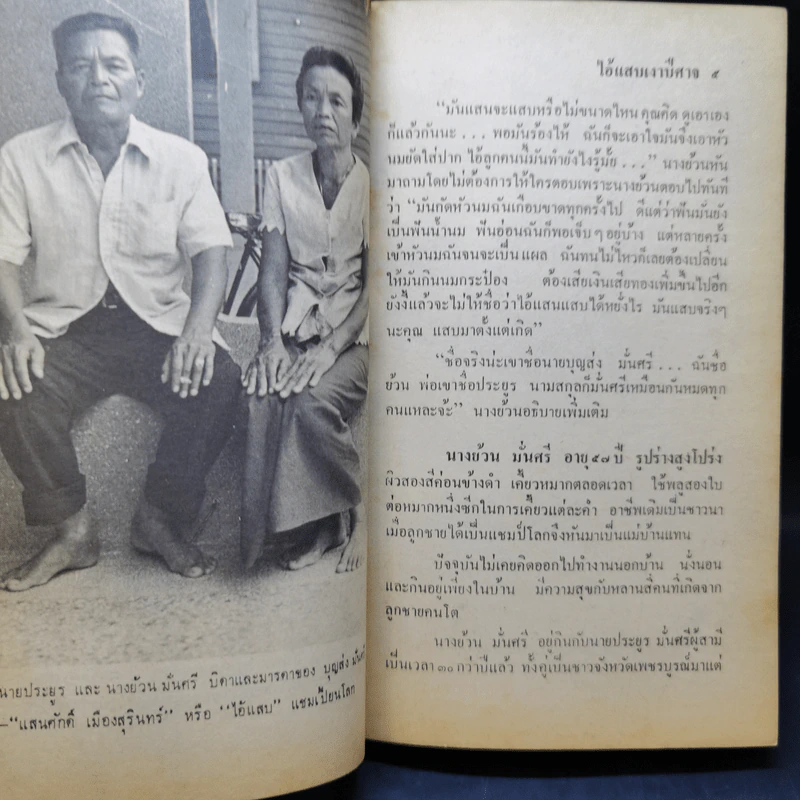 นายประยูร และ นางย้วน มั่นศรี บิดาและมารดาของ บุญส่ง มั่นศรี
—"แสนศักดิ์ เมืองสุรินทร์" หรือ "ไอ้แสบ" แชมเปี้ยนโลก
ไอ้แสบเงาปีศาจ ๕
"มันแสนจะแสบหรือไม่ขนาดไหน คุณคิด ดูเอาเอง
ก็แล้วกันนะ ... พอมันร้องไห้ ฉันก็จะเอาใจมันจึงเอาหัว
นมยัดใส่ปาก ไอ้ลูกคนนี้มันทำยังไงรู้มั้ย ..." นางย้วนหัน
มาถามโดยไม่ต้องการให้ใครตอบเพราะนางย้วนตอบไปทันที
ว่า "มันกัดหัวนมฉันเกือบขาดทุกครั้งไป ดีแต่ว่าฟันมันยัง
เป็นฟันน้ำนม ฟันอ่อนฉันก็พอเจ็บๆอยู่บ้าง แต่หลายครั้ง
เข้าหัวนมฉันจนจะเป็นแผล ฉันทนไม่ไหวก็เลยต้องเปลี่ยน
ให้มันกินนมกระป๋อง ต้องเสียเงินเสียทองเพิ่มขึ้นไปอีก
ยังงี้แล้วจะไม่ให้ชื่อว่าไอ้แสนแสบได้หยั่งไร มันแสบจริงๆ
นะคุณ แสบมาตั้งแต่เกิด"
"ชื่อจริงน่ะเขาชื่อนายบุญส่ง มั่นศรี ... ฉันชื่อ
ย้วน พ่อเขาชื่อประยูร นามสกุลก็มั่นศรีเหมือนกันหมดทุก
คนแหละจ้ะ" นางย้วนอธิบายเพิ่มเติม
นางย้วน มั่นศรี อายุ ๕๗ ปี รูปร่างสูงโปร่ง
ผิวสองสีค่อนข้างดำ เคี้ยวหมากตลอดเวลา ใช้พลูสองใบ
ต่อหมากหนึ่งซีกในการเคี้ยวแต่ละคำ อาชีพเดิมเป็นชาวนา
เมื่อลูกชายได้เป็นแชมป์โลกจึงหันมาเป็นแม่บ้านแทน
ปัจจุบันไม่เคยคิดออกไปทำงานนอกบ้าน นั่งนอน
และกินอยู่เพียงในบ้าน มีความสุขกับหลานสี่คนที่เกิดจาก
ลูกชายคนโต
นางย้วน มั่นศรี อยู่กินกับนายประยูร มั่นศรีผู้สามี
เป็นเวลา ๓๐ กว่าปีแล้ว ทั้งคู่เป็นชาวจังหวัดเพชรบูรณ์มาแต่